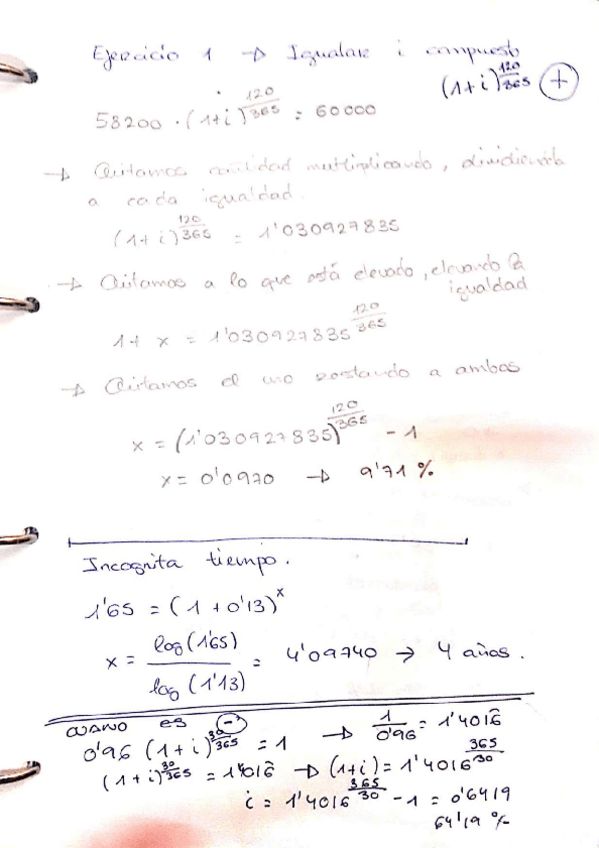 Ejercicio 1 → Igualar i compuesto
(1+i)^120/365 (+)
58200 · (1+i)^120/365 = 60000
→ Quitamos multiplicando, dividiendo
a cada igualdad.
(1+i)^120/365 = 1'030927835
→ Quitamos a lo que está elevado, elevando la
igualdad
1 + x = 1'030927835^120/365
→ Quitamos el uno restando a ambos
x = (1'030927835)^120/365 - 1
x = 0'0970 → 9'71 %
Incognita tiempo.
1'65 = (1 + 0'13)^x
x = log(1'65) / log(1'13) = 4'09740 → 4 años.
CUANDO es (-)
0'96 (1+i)^30/365 = 1 → 1/0'96 = 1'4016
(1+i)^30/365 = 1'4016 → (1+i) = 1'4016^365/30
i = 1'4016^365/30 - 1 = 0'6419
64'19 %